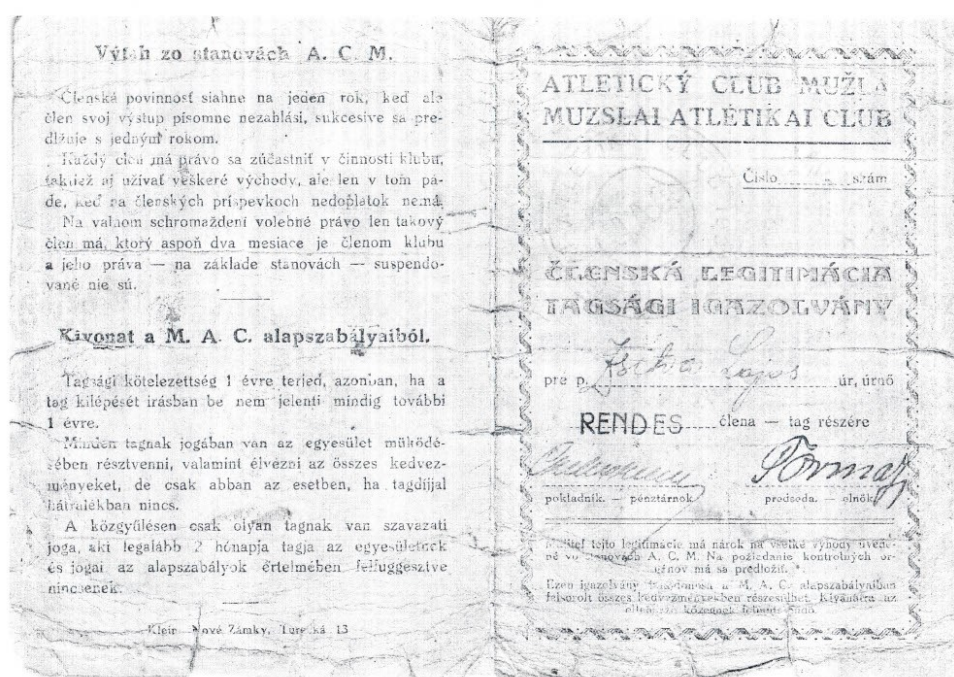 Výťah zo stanovách A. C. M.
Členská povinnosť siahne na jeden rok, keď ale
člen svoj výstup písomne nezahlási, sukcesive sa pre-
dlžuje s jedným rokom.
Každý člen má právo sa zúčastniť v činnosti klubu,
taktiež aj užívať veškeré východy, ale len v tom pá-
de, keď na členských príspevkoch nedoplatok nemá.
Na valnom schromaždení volebné právo len takový
člen má, ktorý aspoň dva mesiace je členom klubu
a jeho práva — na základe stanovách — suspendo-
vané nie sú.
Kivonat a M. A. C. alapszabályaiból.
Tagsági kötelezettség 1 évre terjed, azonban, ha a
tag kilépését irásban be nem jelenti mindig további
1 évre.
Minden tagnak jogában van az egyesület müködé-
sében résztvenni, valamint élvezni az összes kedvez-
ményeket, de csak abban az esetben, ha tagdíjjal
hátralékban nincs.
A közgyűlésen csak olyan tagnak van szavazati
joga, aki legalább 2 hónapja tagja az egyesületnek
és jogai az alapszabályok értelmében felfüggesztve
nincsenek.
Nové Zámky, Turecká 13
ATLETICKÝ CLUB MUŽLA
MUZSLAI ATLÉTIKAI CLUB
Číslo szám
ČLENSKÁ LEGITIMÁCIA
TAGSÁGI IGAZOLVÁNY
pre p. Lajos úr, úrnő
RENDES člena — tag részére
pokladník. — pénztárnok. predseda. — elnök.
Majiteľ tejto legitimácie má nárok na všetké výhody uvede-
né vo stanovách A. C. M. Na požiadanie kontrolných or-
gánov má sa predložiť.
Ezen igazolvány M. A. C. alapszabályaiban
felsorolt összes kedvezményekben részesülhet. Kívánatra az